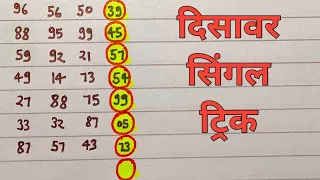 96 56 50 39
88 95 99 45
59 92 21 57
49 14 73 54
27 88 75 99
33 32 87 05
87 57 43 23
दिसावर
सिंगल
ट्रिक